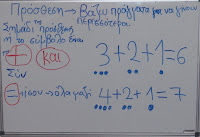 Πρόσθεση → Βάζω πράγματα για να γίνουν
περισσότερα.
Σημάδι της πρόσθεσης
ή το σύμβολο είναι
+ και
3+2+1=6
Σύν
= ίσον → όλα μαζί
4+2+1=7